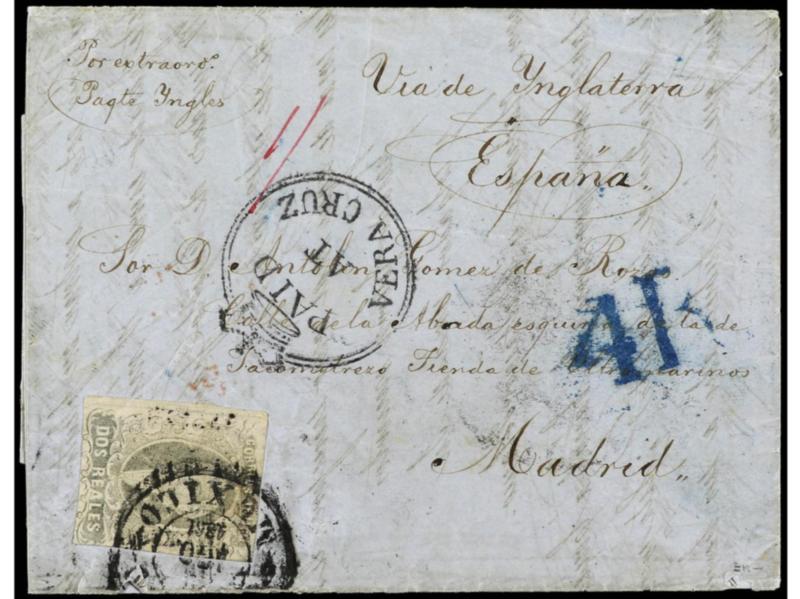 Por extraordº.
Paqte Yngles
Via de Ynglaterra
España
PAID AT VERA CRUZ
Sor. D. Antolin Gomez de Rozo
Calle de la Abada esquina de la de
Jacometrezo Tienda de Ultramarinos
4R
Madrid
DOS REALES
CORREOS
MEXICO